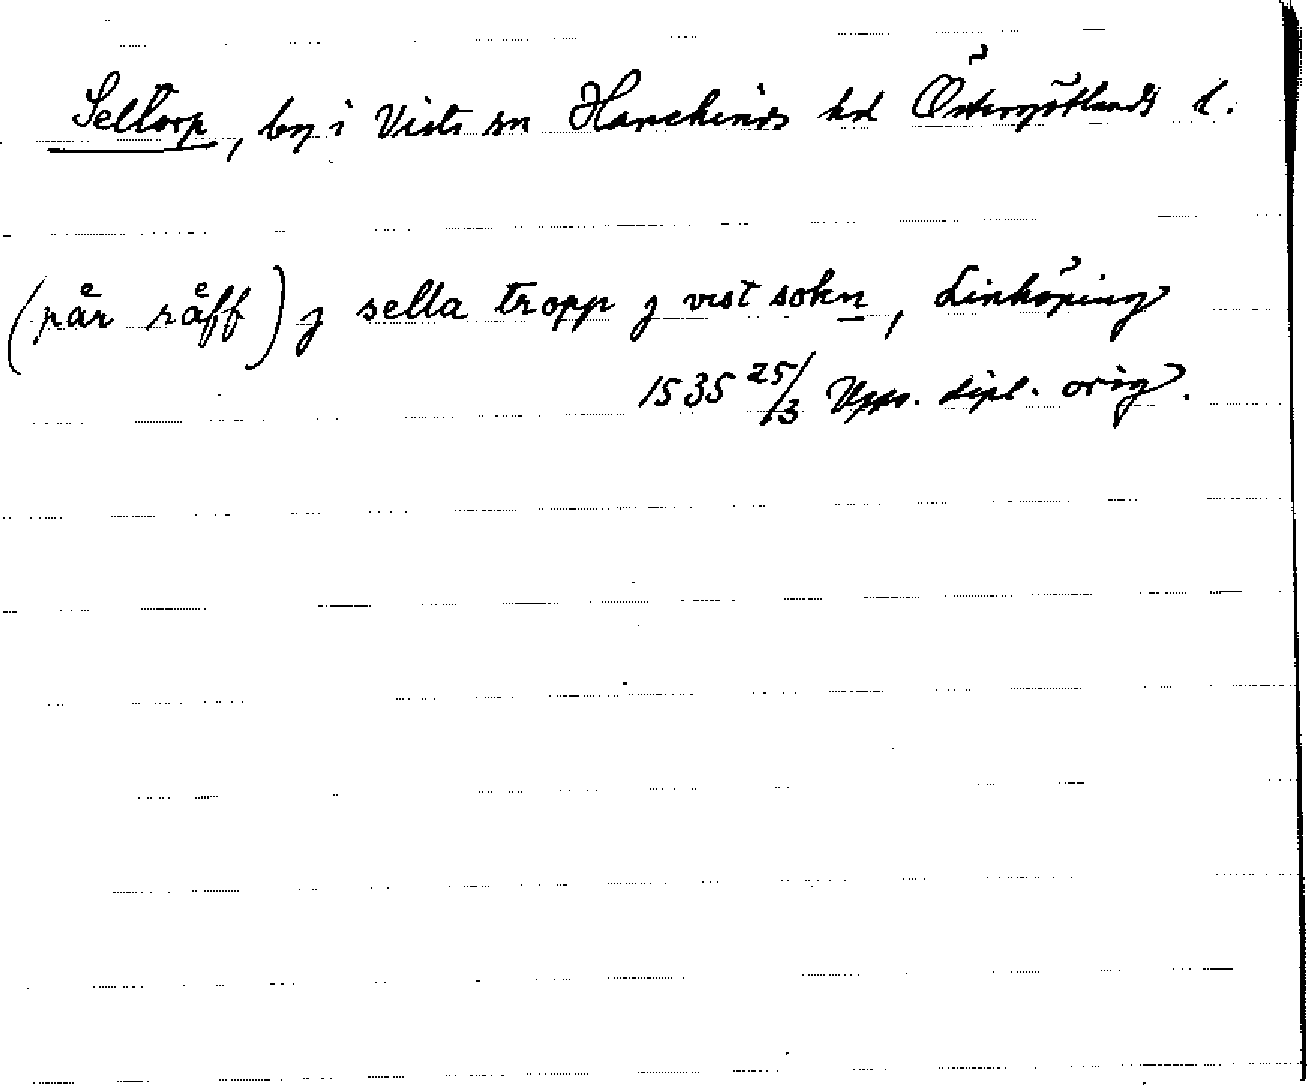 Seltorp, by i Vists sn Hanekinds hd Östergötlands l.
(pår råff) j sella tropp j vist sokn, Linköping
1535 25/3 Upps. dipl. orig.